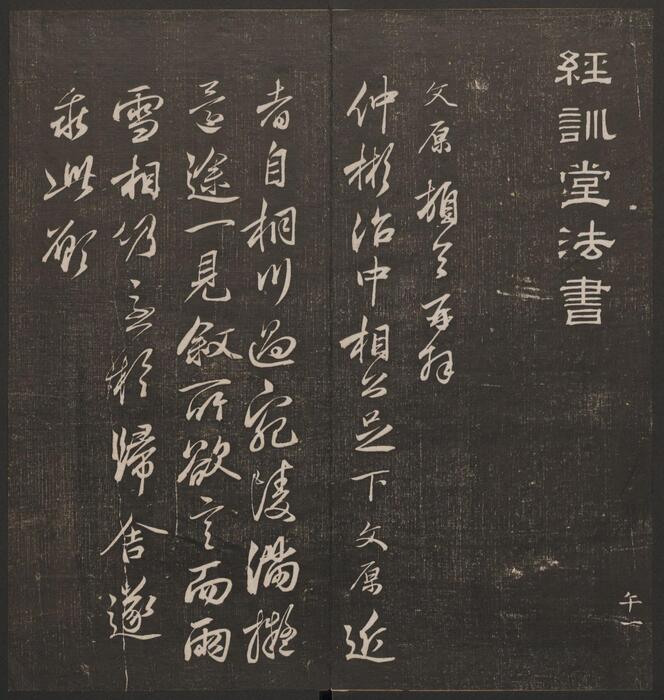 經訓堂法書
午一
文原頓首再拜
仲彬治中相公足下文原近
者自桐川過宛陵滿擬
道途一見叙所欲言而雨
雪相仍急於歸舍遂
乖此願